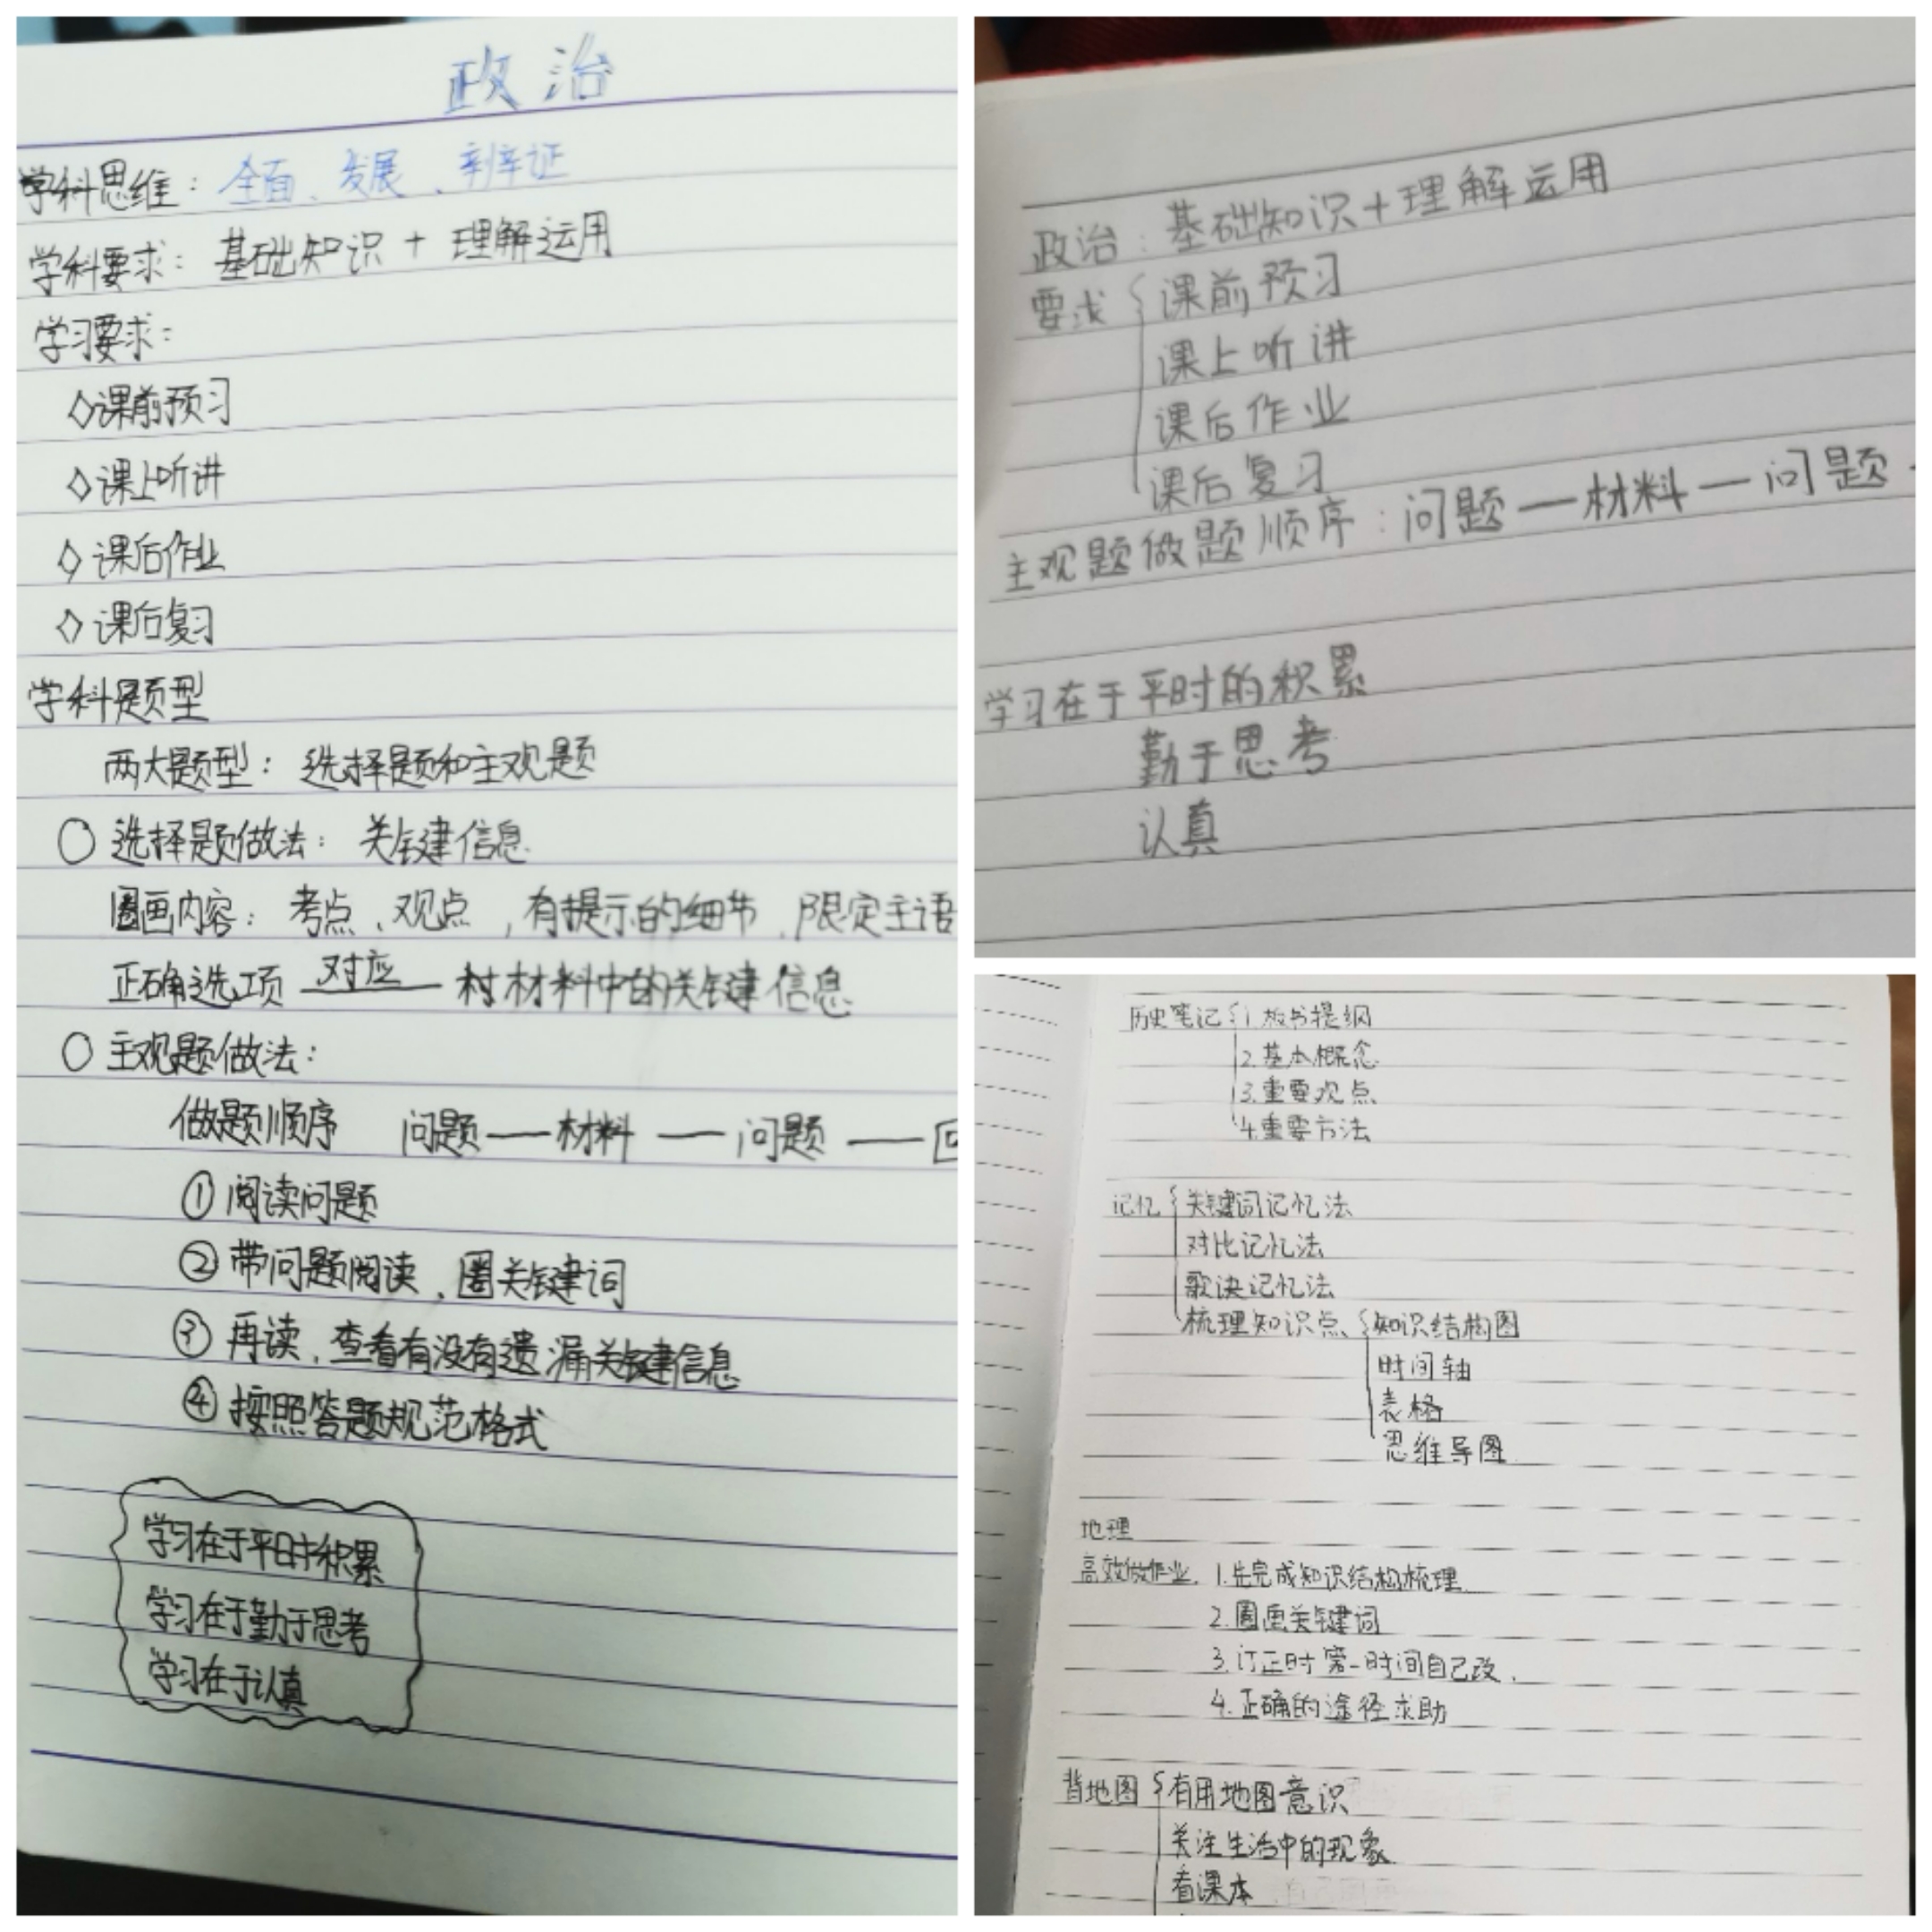 政治
学科思维：全面、发展、辩证
学科要求：基础知识 + 理解运用
学习要求：
◇课前预习
◇课上听讲
◇课后作业
◇课后复习
学科题型
两大题型：选择题和主观题
○ 选择题做法：关键信息
圈画内容：考点、观点，有提示的细节、限定主语
正确选项 对应 材料中的关键信息
○ 主观题做法：
做题顺序 问题——材料——问题——
① 阅读问题
② 带问题阅读、圈关键词
③ 再读、查看有没有遗漏关键信息
④ 按照答题规范格式
学习在于平时积累
学习在于勤于思考
学习在于认真
政治：基础知识+理解运用
要求 课前预习
课上听讲
课后作业
课后复习
主观题做题顺序：问题—材料—问题
学习在于平时的积累
勤于思考
认真
历史笔记 1.板书提纲
2.基本概念
3.重要观点
4.重要方法
记忆 关键词记忆法
对比记忆法
歌诀记忆法
梳理知识点 知识结构图
时间轴
表格
思维导图
地理
高效做作业. 1.先完成知识结构梳理
2.圈画关键词
3.订正时第一时间自己改.
4.正确的途径求助
背地图 有用地图意识
关注生活中的现象
看课本